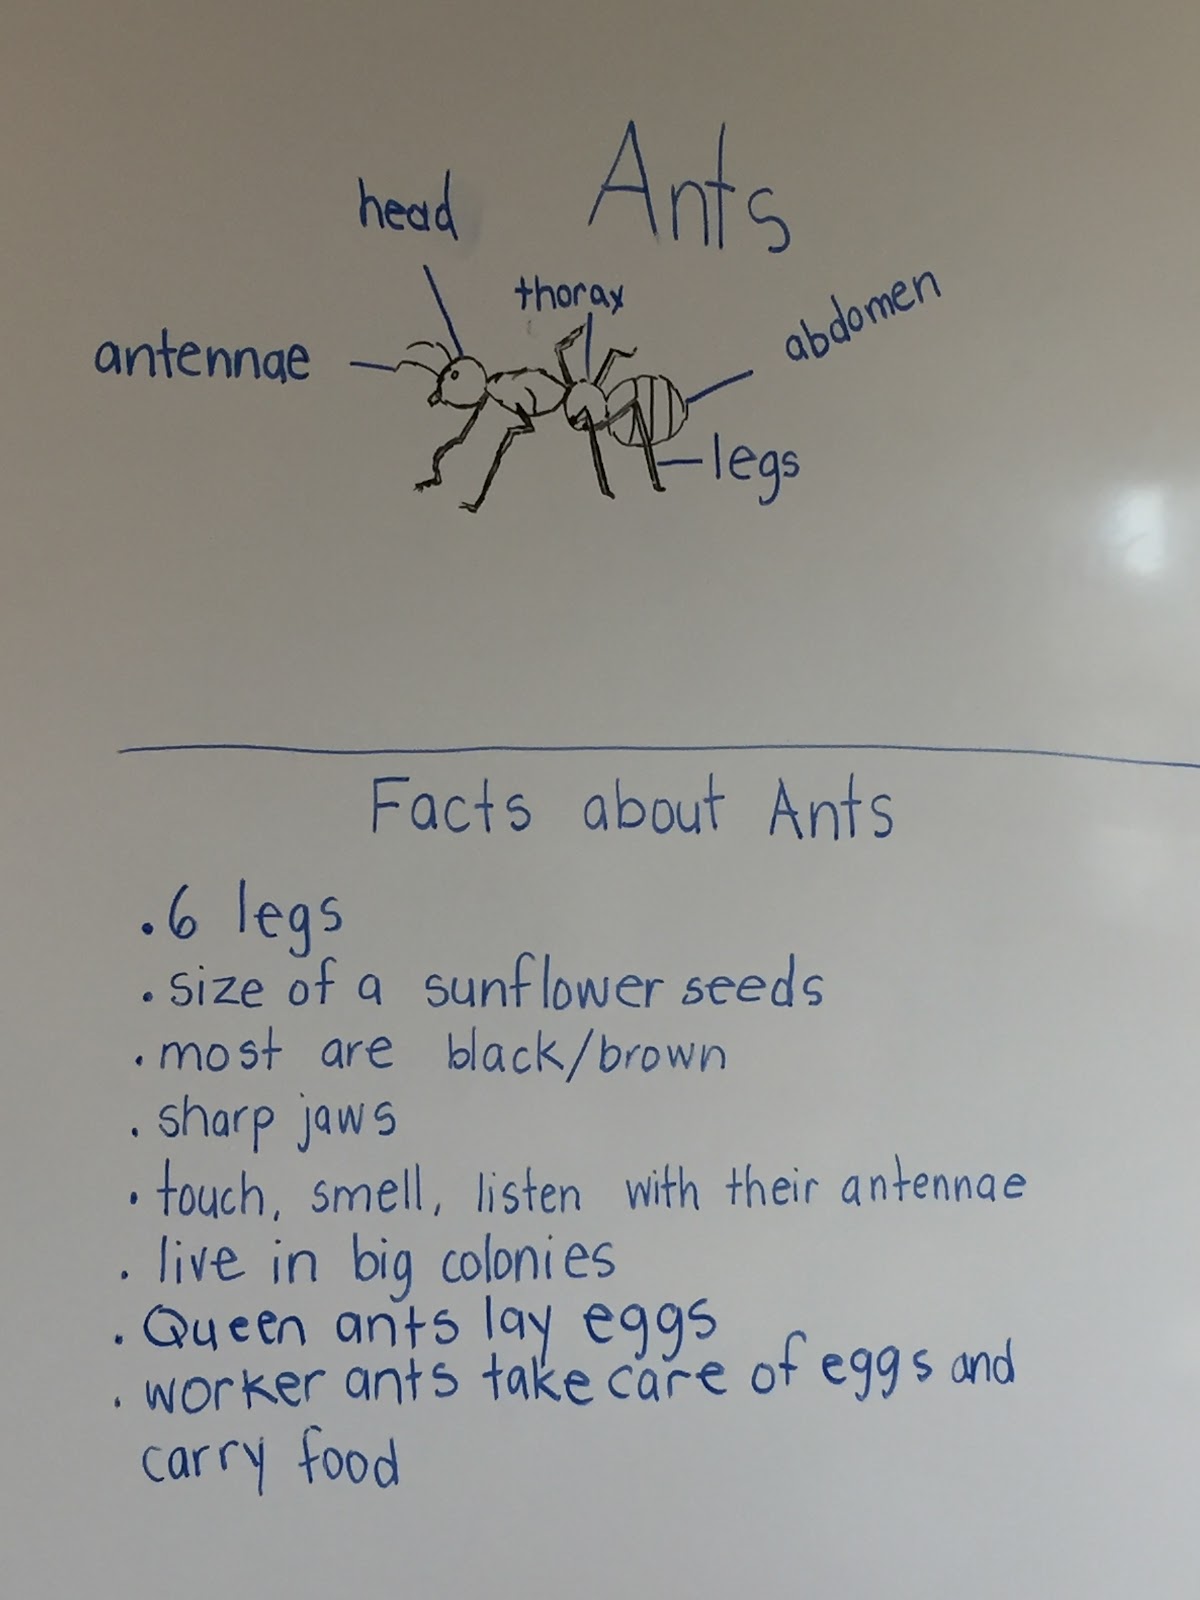 Ants
head
thorax
abdomen
antennae
legs
Facts about Ants
. 6 legs
. size of a sunflower seeds
. most are black/brown
. sharp jaws
. touch, smell, listen with their antennae
. live in big colonies
. Queen ants lay eggs
. worker ants take care of eggs and
carry food